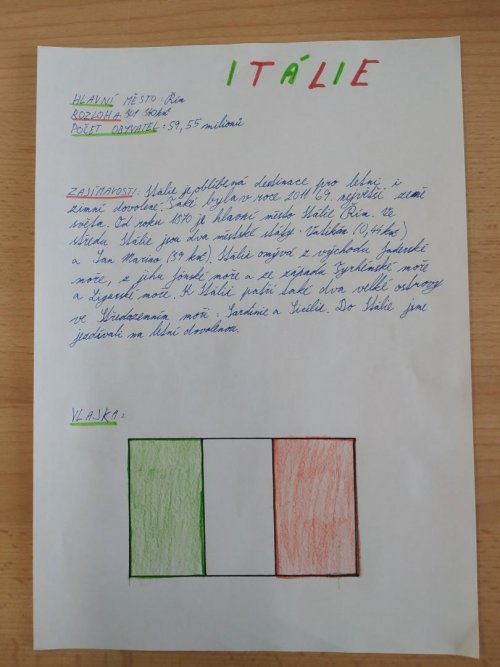 ITÁLIE
HLAVNÍ MĚSTO: Řím
ROZLOHA: 301 340 km²
POČET OBYVATEL: 59,55 milionů
ZAJÍMAVOSTI: Itálie je oblíbená destinace pro letní i
zimní dovolené. Také byla v roce 2011 69. největší země
světa. Od roku 1870 je hlavní město Itálie Řím. Ve
středu Itálie jsou dva městské státy: Vatikán (0,44 km²)
a San Marino (39 km²). Itálii omývá z východu Jaderské
moře, z jihu Jónské moře a ze západu Tyrhénské moře
a Ligurské moře. K Itálii patří také dva velké ostrovy
ve Středozemním moři: Sardinie a Sicílie. Do Itálie jsme
jezdívali na letní dovolenou.
VLAJKA: